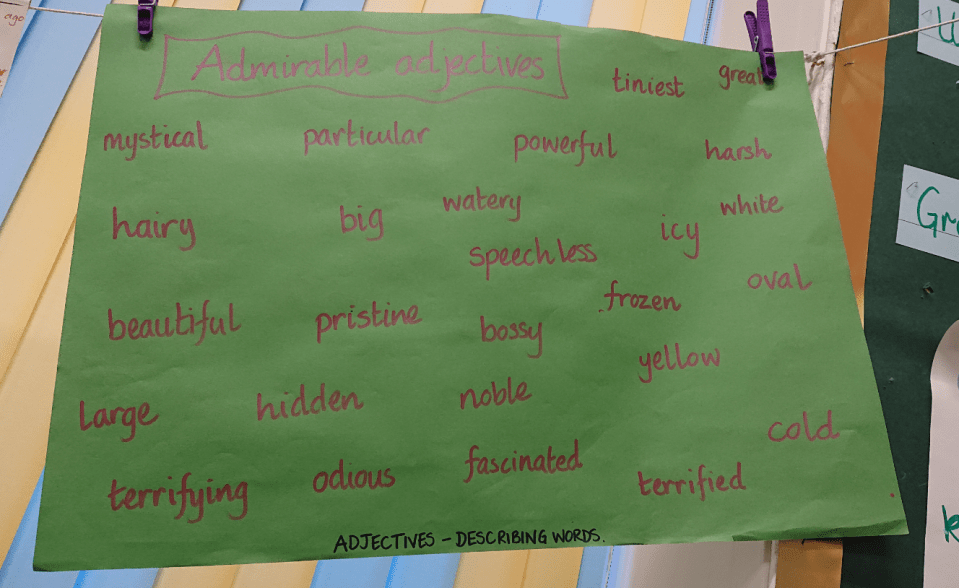 ago
Admirable adjectives
tiniest great
mystical particular powerful harsh
hairy big watery white
speechless icy
beautiful pristine bossy frozen oval
large hidden noble yellow
cold
terrifying odious fascinated terrified
ADJECTIVES – DESCRIBING WORDS.